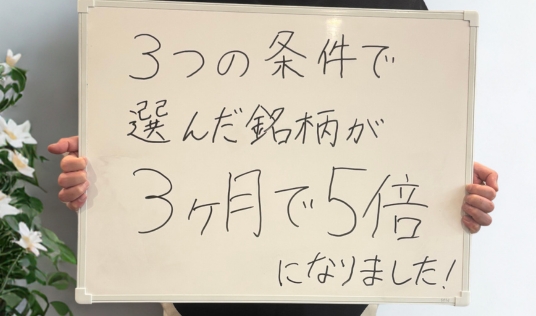 3つの条件で
選んだ銘柄が
3ヶ月で5倍
になりました!